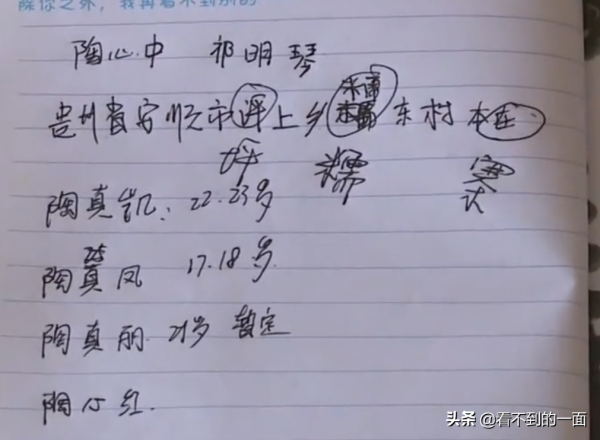 除你之外，我再看不到别的
陶心中 祁明琴
贵州省安顺市坪上乡 东村 本在
坪 糯 寨
陶真凯：22.23岁
陶真凤 17.18岁
陶真丽 21岁 暂定
陶小红.
头条 @看不到的一面